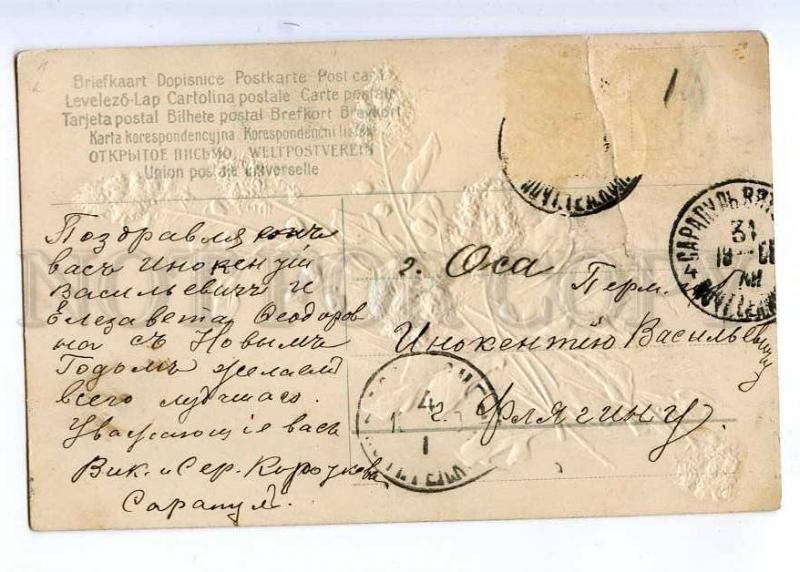 Briefkaart Dopisnice Postkarte Post card
Levelező-Lap Cartolina postale Carte postale
Tarjeta postal Bilhete postal Brefkort Brevkort
Karta korespondencyjna Korespondenčni listek
ОТКРЫТОЕ ПИСЬМО WELTPOSTVEREIN
Union postale universelle
Поздравля
васъ Инокентій
Васильевичъ и
Елезавета Ѳеодоров
на съ Новымъ
Годомъ желаем
всего лучшаго.
Уважающіе васъ
Вик. и Сер. Коро
Сарапул
г. Оса
Перм.
Инокентію Васильевичу
г. Флягину.
САРАПУЛЪ ВЯТ
31
XII
4
I